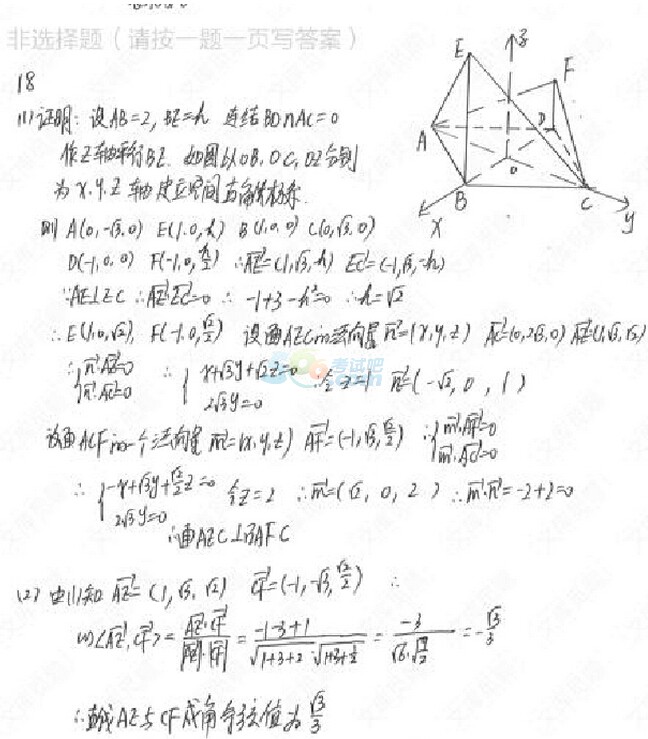 非选择题（请按一题一页写答案）
18
(1)证明：设AB=2, BE=h 连结BD∩AC=O
作Z轴平行BE. 如图以OB, OC, OZ分别
为x.y.z轴建立空间直角坐标系
则 A(0,-√3,0) E(1,0,h) B(1,0,0) C(0,√3,0)
D(-1,0,0) F(-1,0,h/2) ∴AE=(1,√3,h) EC=(-1,√3,-h)
∵AE⊥EC ∴AE·EC=0 ∴ -1+3-h²=0 ∴h=√2
∴E(1,0,√2), F(-1,0,√2/2) 设面AEC的法向量n=(x,y,z) AC=(0,2√3,0) AE=(1,√3,√2)
∴{n·AE=0 n·AC=0 ∴{x+√3y+√2z=0 2√3y=0 ∴令z=1 n=(-√2, 0, 1)
设面ACF的一个法向量m=(x,y,z) AF=(-1,√3,√2/2) ∴{m·AF=0 m·AC=0
∴{-x+√3y+√2/2z=0 2√3y=0 令z=2 ∴m=(√2, 0, 2) ∴m·n=-2+2=0
∴面AEC⊥面AFC
(2) 由(1)知 AE=(1,√3,√2) CF=(-1,-√3,√2/2) ∴
cos<AE,CF>=AE·CF/|AE|·|CF|=-1-3+1/√1+3+2·√1+3+1/2=-3/√6·√9/2=-√3/3
∴直线AE与CF成角余弦值为√3/3
E
F
A
D
O
B
C
x
y
z
考试吧
.com